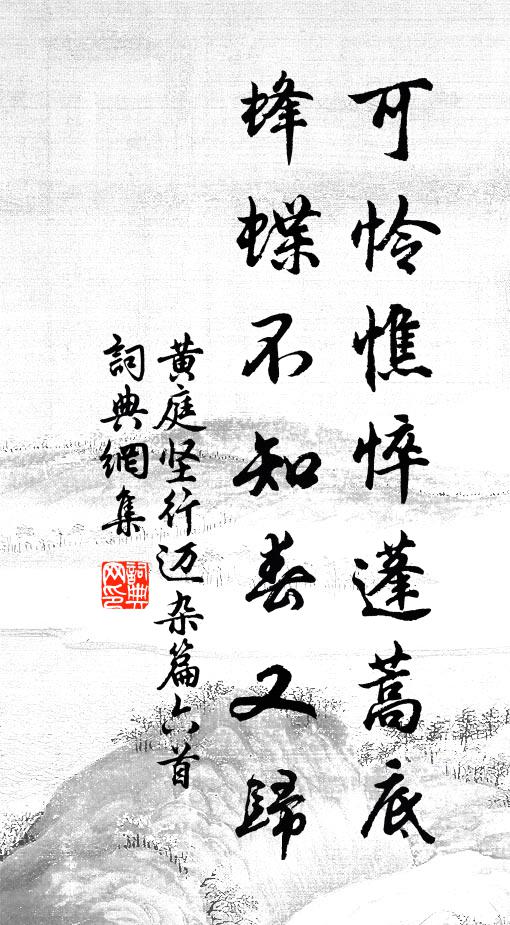 可怜憔悴蓬蒿底
蜂蝶不知春又歸
黄庭坚行迈杂篇六首
詞典網集
詞典网印